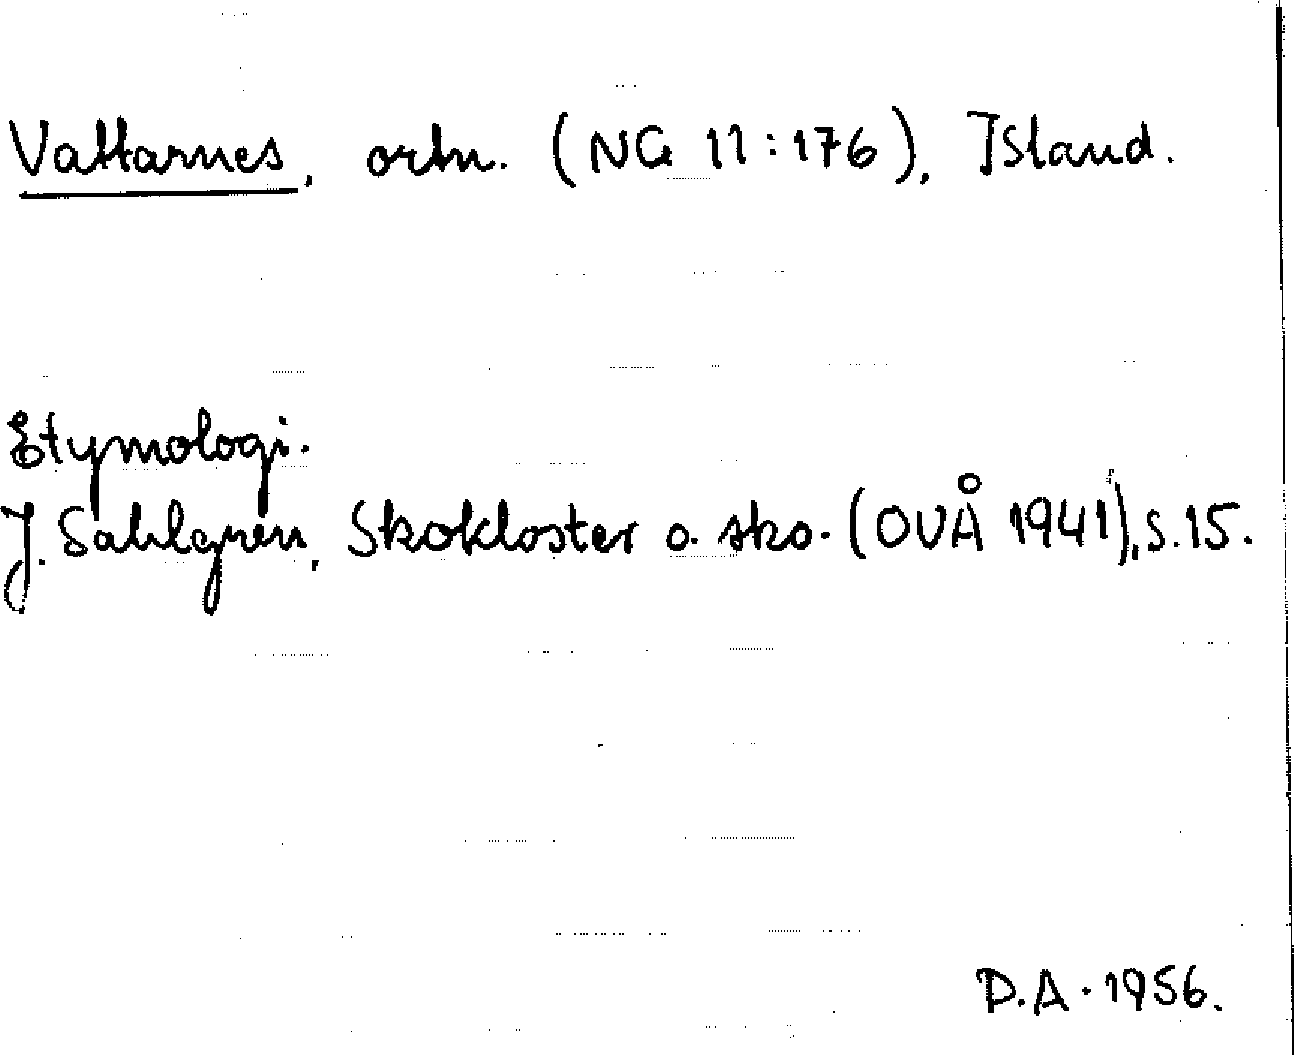 Vattarnes, ortn. (NG 11:176), Island.
Etymologi.
J. Sahlgren, Skokloster o. sko. (OUÅ 1941), s. 15.
D.A. 1956.